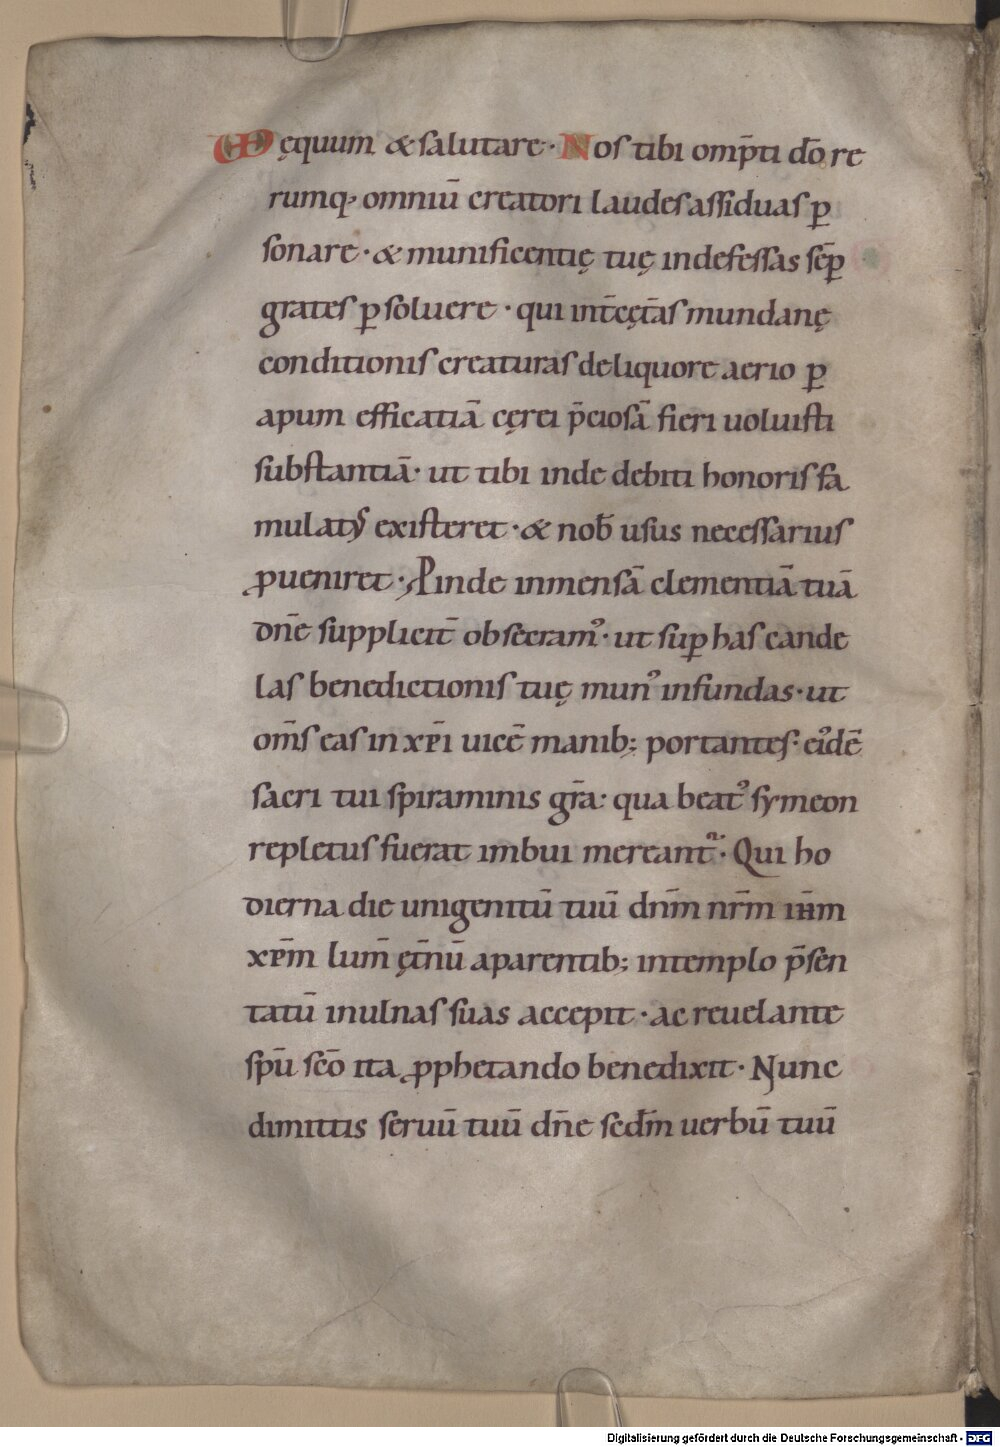 VD ęquum & salutare· Nos tibi omp̄ti dō re
rumq; omniū creatori laudes assiduas ꝑ
sonare· & munificentię tuę indefessas sēꝑ
grates ꝑsoluere· qui int̄ cęt̄as mundanę
conditionis creaturas de liquore aerio ꝑ
apum efficatiā cęrei p̄ciosā fieri uoluisti
substantiā· ut tibi inde debiti honoris fa
mulatꝰ existeret· & nob̄ usus necessarius
ꝓueniret· Proinde inmensā clementiā tuā
dn̄e supplicit̄ obsecramꝰ· ut suꝑ has cande
las benedictionis tuę munꝰ infundas· ut
om̄s eas in xp̄i uicē manib; portantes· eiꝰdē
sacri tui spiraminis gr̄a· qua beatꝰ symeon
repletus fuerat imbui mereant᷑· Qui ho
dierna die unigenitū tuū dn̄m nr̄m ih̄m
xp̄m lum̄ ęt̄nū aparentib; in templo p̄sen
tatū in ulnas suas accepit· ac reuelante
sp̄u sc̄o ita ꝓphetando benedixit· Nunc
dimittis seruū tuū dn̄e sedm̄ uerbū tuū
Digitalisierung gefördert durch die Deutsche Forschungsgemeinschaft - DFG